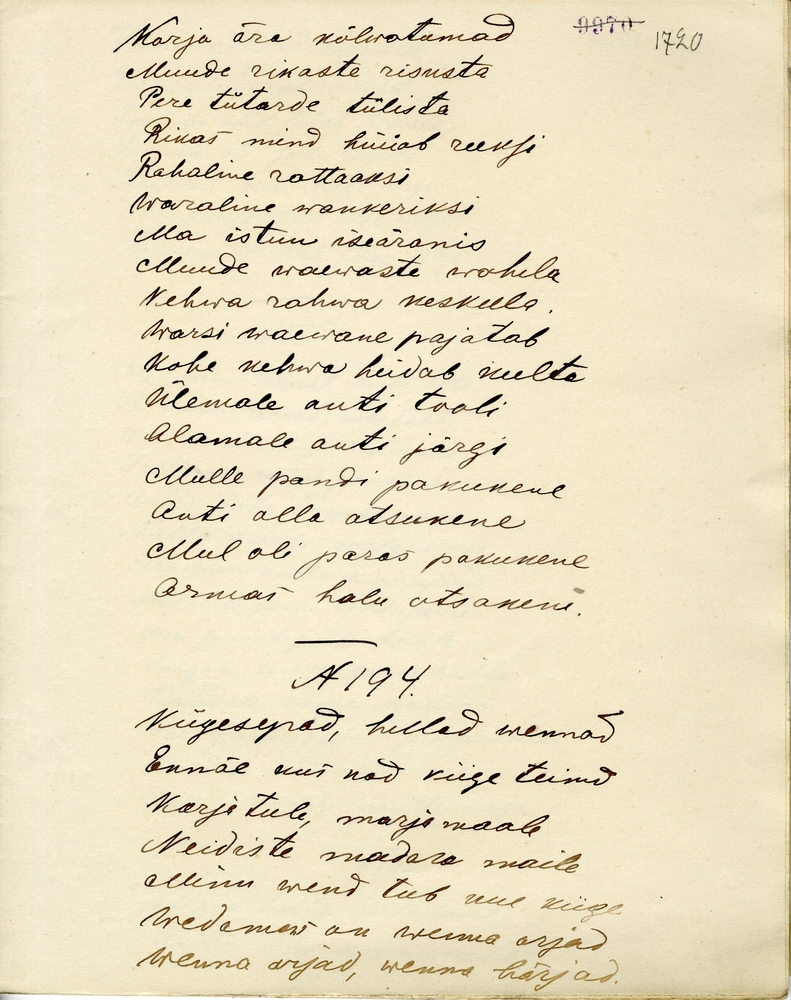 9970
1720
Karja ära kõlwatumad
Muude rikaste risusta
Pere tütarde tülista
Rikas mind hüüab reeksi
Rahaline rattaaksi
Waraline wankeriksi
Ma istun iseäranis
Muude waewaste wahela
Kehwa rahwa keskeela.
Warsi waewane pajatab
Kohe kehwa heidab keelta
Ülemale anti tooli
Alamale anti järgi
Mulle pandi pakukene
Anti alla otsukene
Mul oli paras pakukene
Armas halu otsakene.
N 194.
Kiigesepad, hellad wennad
Ennäe kus nad kiige teinud
Karja tule, marja maale
Neidiste madara maile
Minu wend teeb uue kiige
Wedamas on wenna orjad
Wenna orjad, wenna härjad.